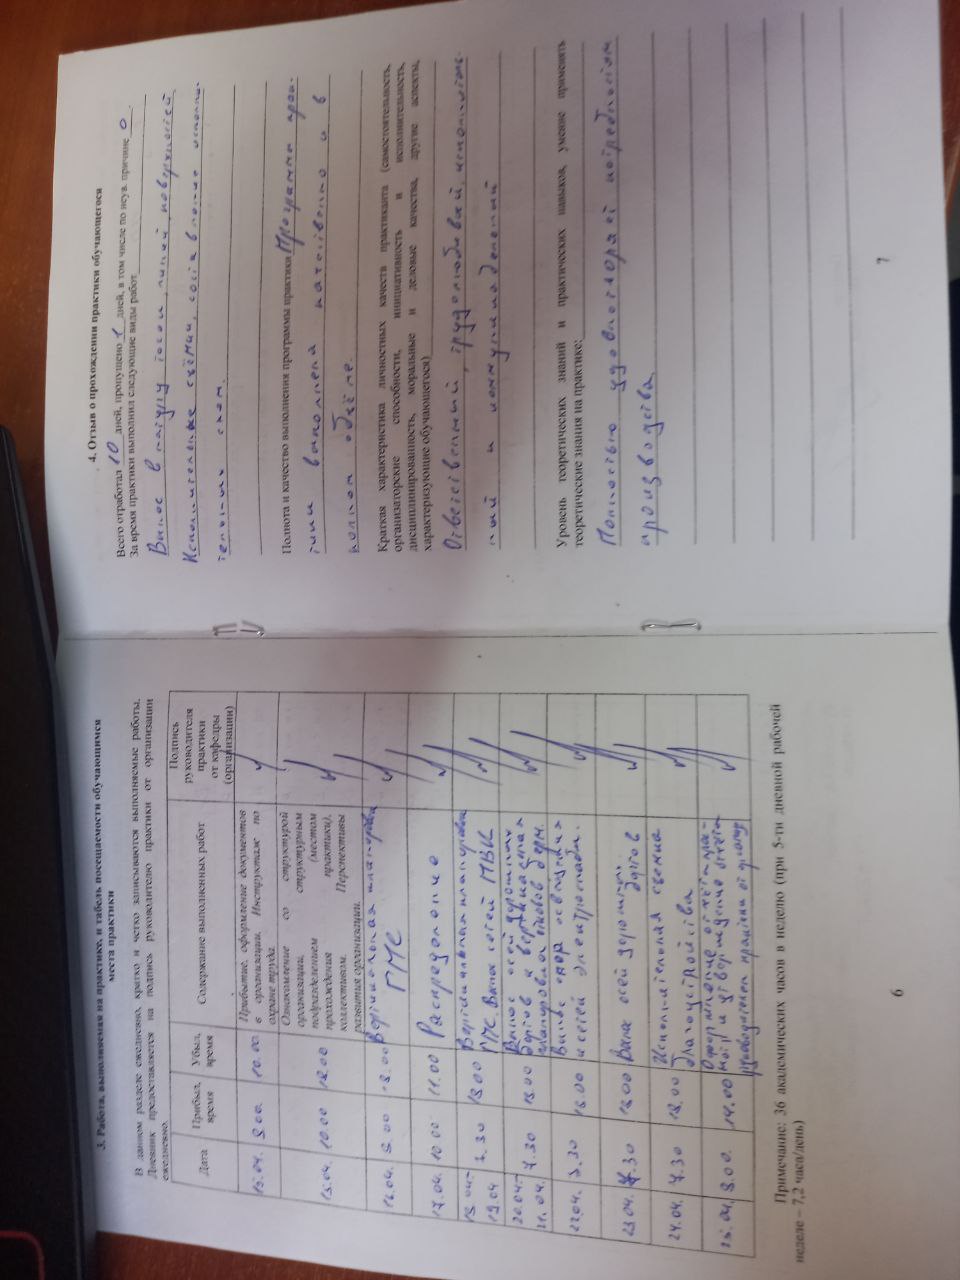 3. Работа, выполняемая на практике, и табель посещаемости обучающимся
места практики
В данном разделе ежедневно, кратко и четко записываются выполняемые работы.
Дневник предоставляется на подпись руководителю практики от организации
ежедневно.
Дата
Прибыл, время
Убыл, время
Содержание выполненных работ
Подпись руководителя практики от кафедры (организации)
15.04. 9.00. 10.00. Прибытие, оформление документов
в организации. Инструктаж по
охране труда.
15.04. 10.00 18.00 Ознакомление со структурой
организации, структурным
подразделением (местом
прохождения практики),
коллективом. Перспективы
развития организации.
16.04. 8.00 18.00 Вертикальная планировка
ГМС
17.04. 10.00 11.00 Распредологио
18.04- 7.30 18.00 Вертикальная планировка
19.04 ГМС. Вынос сетей МВК
20.04- 7.30 18.00 Вынос осей дорожных
21.04. бортов и вертикальная
планировка откосов дорог.
22.04. 7.30 18.00 Вынос опор освещения
и сетей электроснаб.
23.04. 7.30 18.00 Вынос осей дорожных
бортов
24.04. 7.30 18.00 Исполнительная съемка
благоустройства
25.04. 8.00. 14.00 Оформление отчёта
и утверждение отчёта
руководителем практики от
Примечание: 36 академических часов в неделю (при 5-ти дневной рабочей
неделе – 7,2 часа/день)
6
4. Отзыв о прохождении практики обучающегося
Всего отработал 10 дней, пропущено 1 дней, в том числе по неув. причине 0.
За время практики выполнил следующие виды работ
Вынос в натуру точек, линий, поверхностей,
Исполнительные съёмки, составление исполни-
тельных схем.
Полнота и качество выполнения программы практики Программа прак-
тики выполнена качественно и в
полном объёме.
Краткая характеристика личностных качеств практиканта (самостоятельность,
организаторские способности, инициативность и исполнительность,
дисциплинированность, моральные и деловые качества, другие аспекты,
характеризующие обучающегося)
Ответственный, трудолюбивый, исполнитель-
ный и коммуникабельный
Уровень теоретических знаний и практических навыков, умение применять
теоретические знания на практике:
Полностью удовлетворяет потребностям
производства.
7